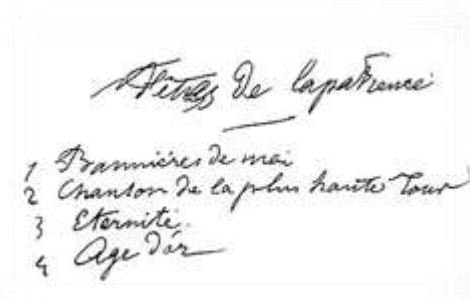 Fêtes de la patience
1 Bannières de mai
2 Chanson de la plus haute Tour
3 Eternité.
4 Age d'or